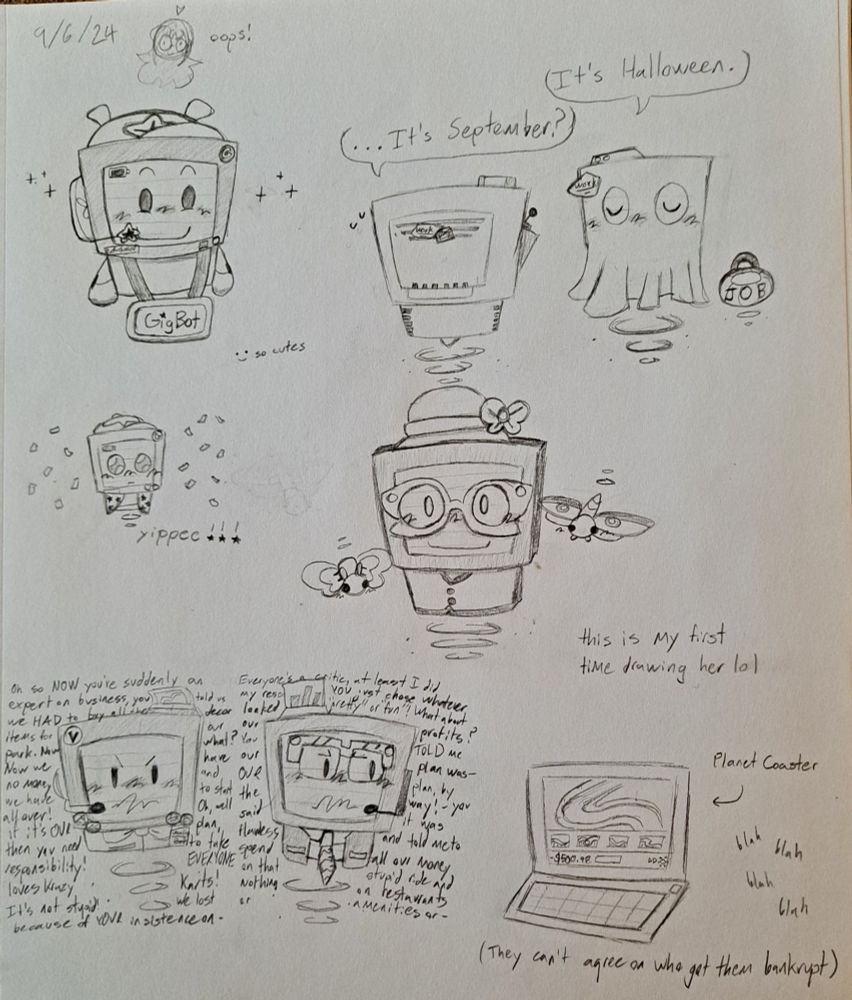 9/6/24
oops!
(It's Halloween.)
(...It's September?)
work
work
JOB
GigBot
so cutes
yippee!!!
this is my first
time drawing her lol
Oh so NOW you're suddenly an
expert on business, you told us
we HAD to buy all the decor
items for our
park. Now what?
Now we have
no money and
we have to start
all over! Oh, well
if it's OUR plan,
then you need to take
responsibility! EVERYONE
loves Krazy Karts!
It's not stupid! we lost
because of YOUR insistence on-
Everyone's a critic, at least I did
my you just chose whatever
looked "pretty" or "fun"! What about
our profits?
You TOLD me
our plan was-
OUR plan, by
the way! - you
said it was
flawless and told me to
spend all our money
on that stupid ride and
nothing on restaurants
or amenities or-
Planet Coaster
-$500.98
blah
blah
blah
blah
(They can't agree on who got them bankrupt)